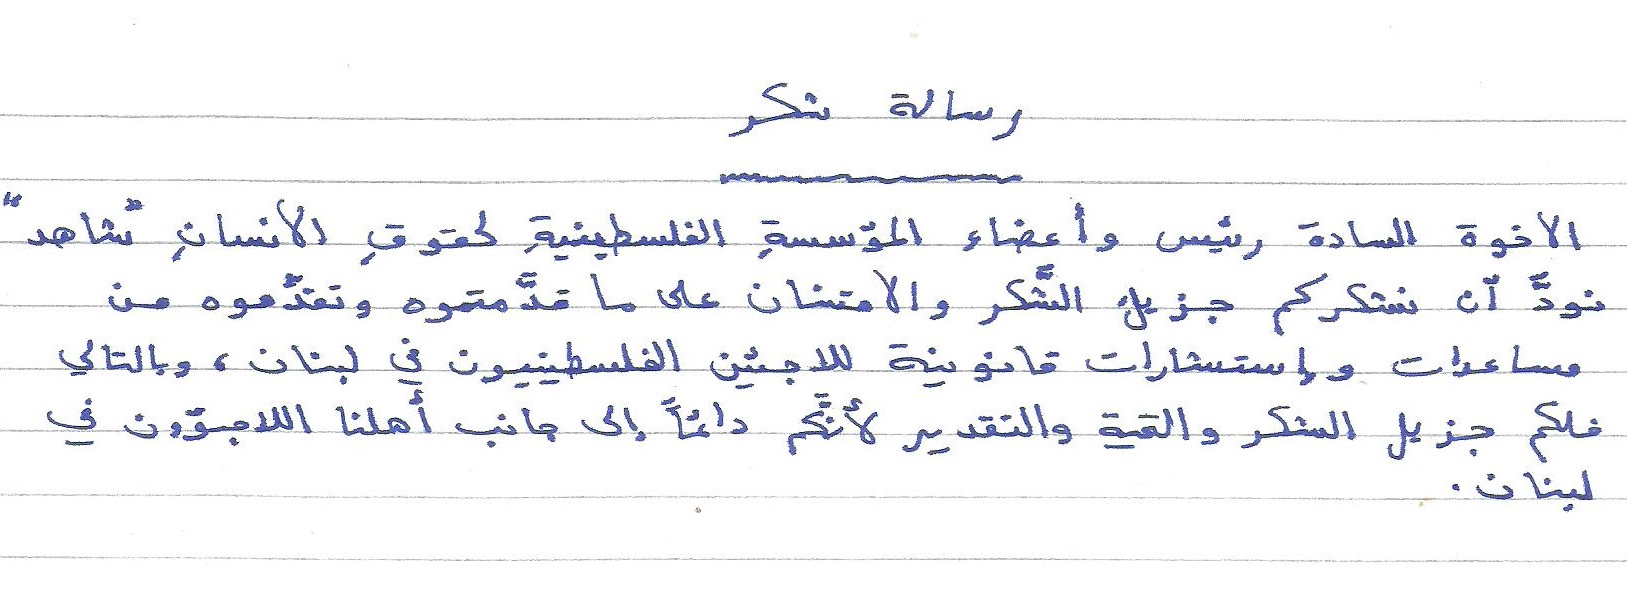 رسالة شكر
الأخوة السادة رئيس وأعضاء المؤسسةِ الفلسطينيةِ لحقوقِ الأنسانِ "شاهد"
نودُّ أن نشكركم جزيلَ الشَّكر والامتنان على ما قدَّمتموه وتقدَّموه من
مساعدات وإستشارات قانونية للاجئين الفلسطينيون في لبنان، وبالتالي
فلكم جزيل الشكر والتحية والتقدير لأنَّكم دائماً إلى جانب أهلنا اللاجئون في
لبنان.